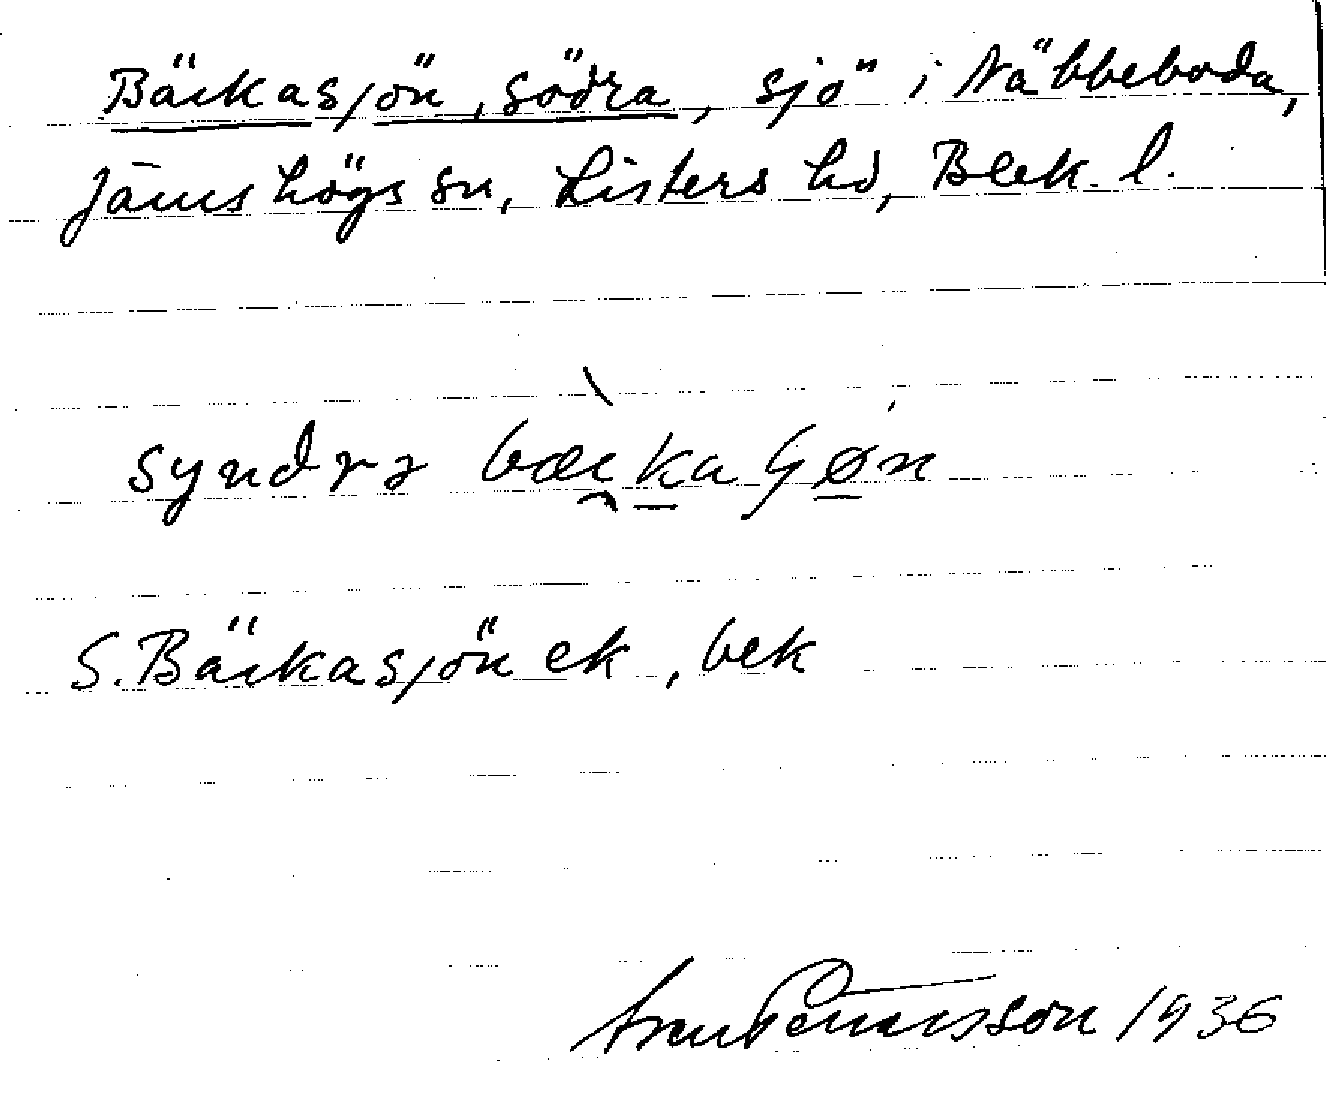 Bäckasjön, södra, sjö i Näbbeboda,
Jämshögs sn, Listers hd, Blek. l.
syndrə
S. Bäckasjön ek, bek
1936